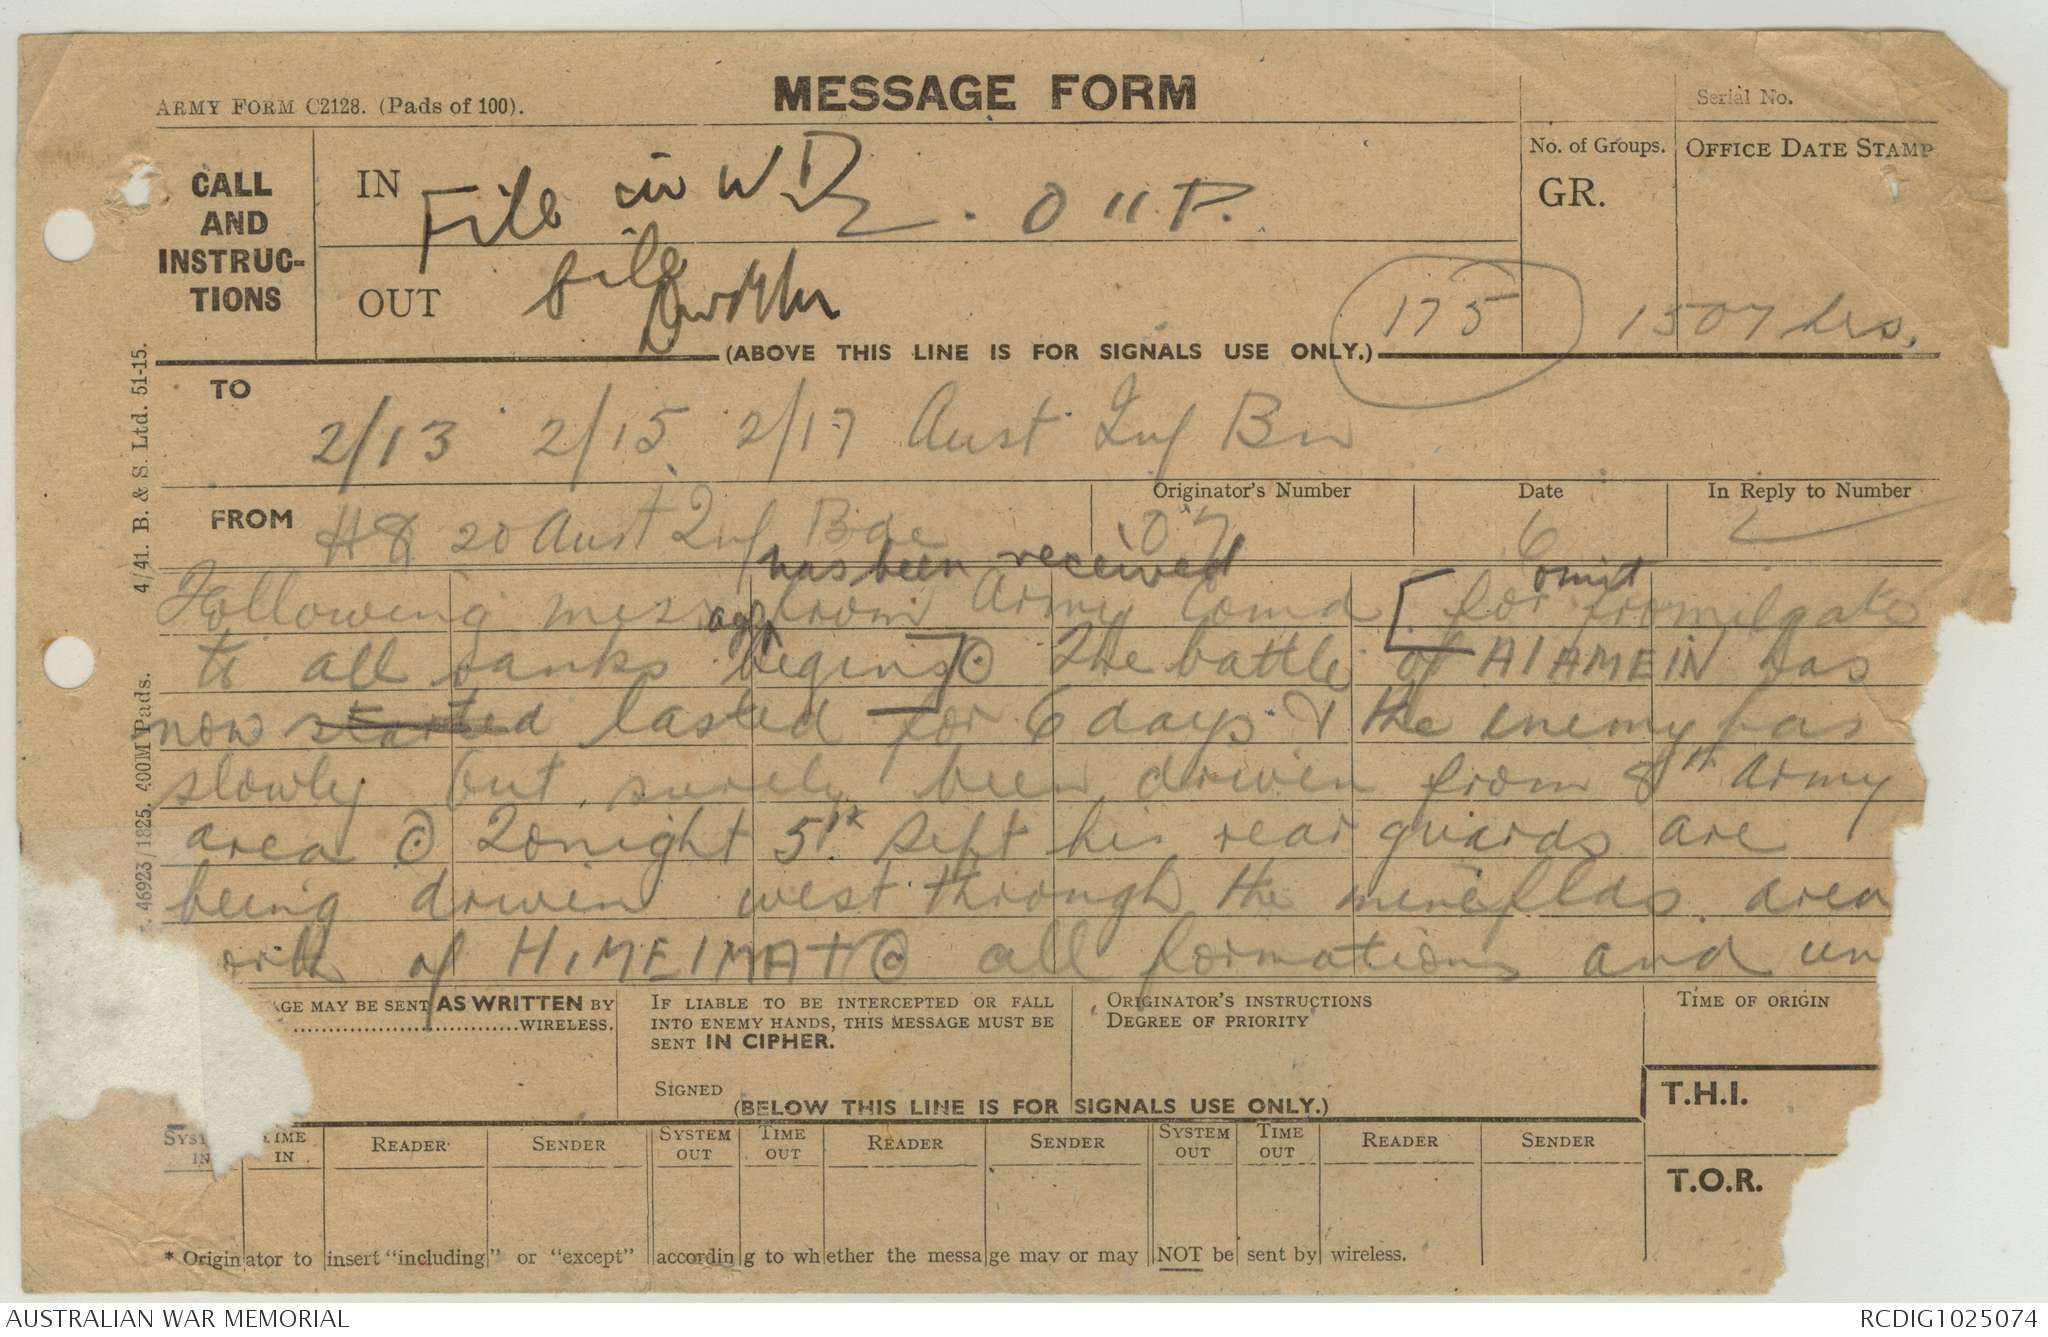 ARMY FORM C2128. (Pads of 100).
MESSAGE FORM
Serial No.
CALL AND INSTRUC-TIONS
IN
File in W D
No. of Groups.
GR.
OFFICE DATE STAMP
OUT
file
175
1507 hrs.
(ABOVE THIS LINE IS FOR SIGNALS USE ONLY.)
TO
2/13 2/15 2/17 Aust Inf Bn
FROM
HQ 20 Aust Inf Bde
Originator's Number
07
Date
6
In Reply to Number
has been received
omit
Following message from Army Comd [for promulgate
to all ranks begins] ⊙ The battle of ALAMEIN has
now started lasted for 6 days & the enemy has
slowly but surely been driven from 8th Army
area ⊙ Tonight 5th Sept his rear guards are
being driven west through the mineflds area
orth of HIMEIMAT ⊙ all formations and un
4/41. B. & S. Ltd. 51-15.
46923/1825. 400M Pads.
AGE MAY BE SENT AS WRITTEN BY
WIRELESS.
IF LIABLE TO BE INTERCEPTED OR FALL
INTO ENEMY HANDS, THIS MESSAGE MUST BE
SENT IN CIPHER.
SIGNED
ORIGINATOR'S INSTRUCTIONS
DEGREE OF PRIORITY
TIME OF ORIGIN
T.H.I.
T.O.R.
(BELOW THIS LINE IS FOR SIGNALS USE ONLY.)
SYST IN
TIME IN
READER
SENDER
SYSTEM OUT
TIME OUT
READER
SENDER
SYSTEM OUT
TIME OUT
READER
SENDER
* Originator to insert "including" or "except" according to whether the message may or may NOT be sent by wireless.
AUSTRALIAN WAR MEMORIAL
RCDIG1025074